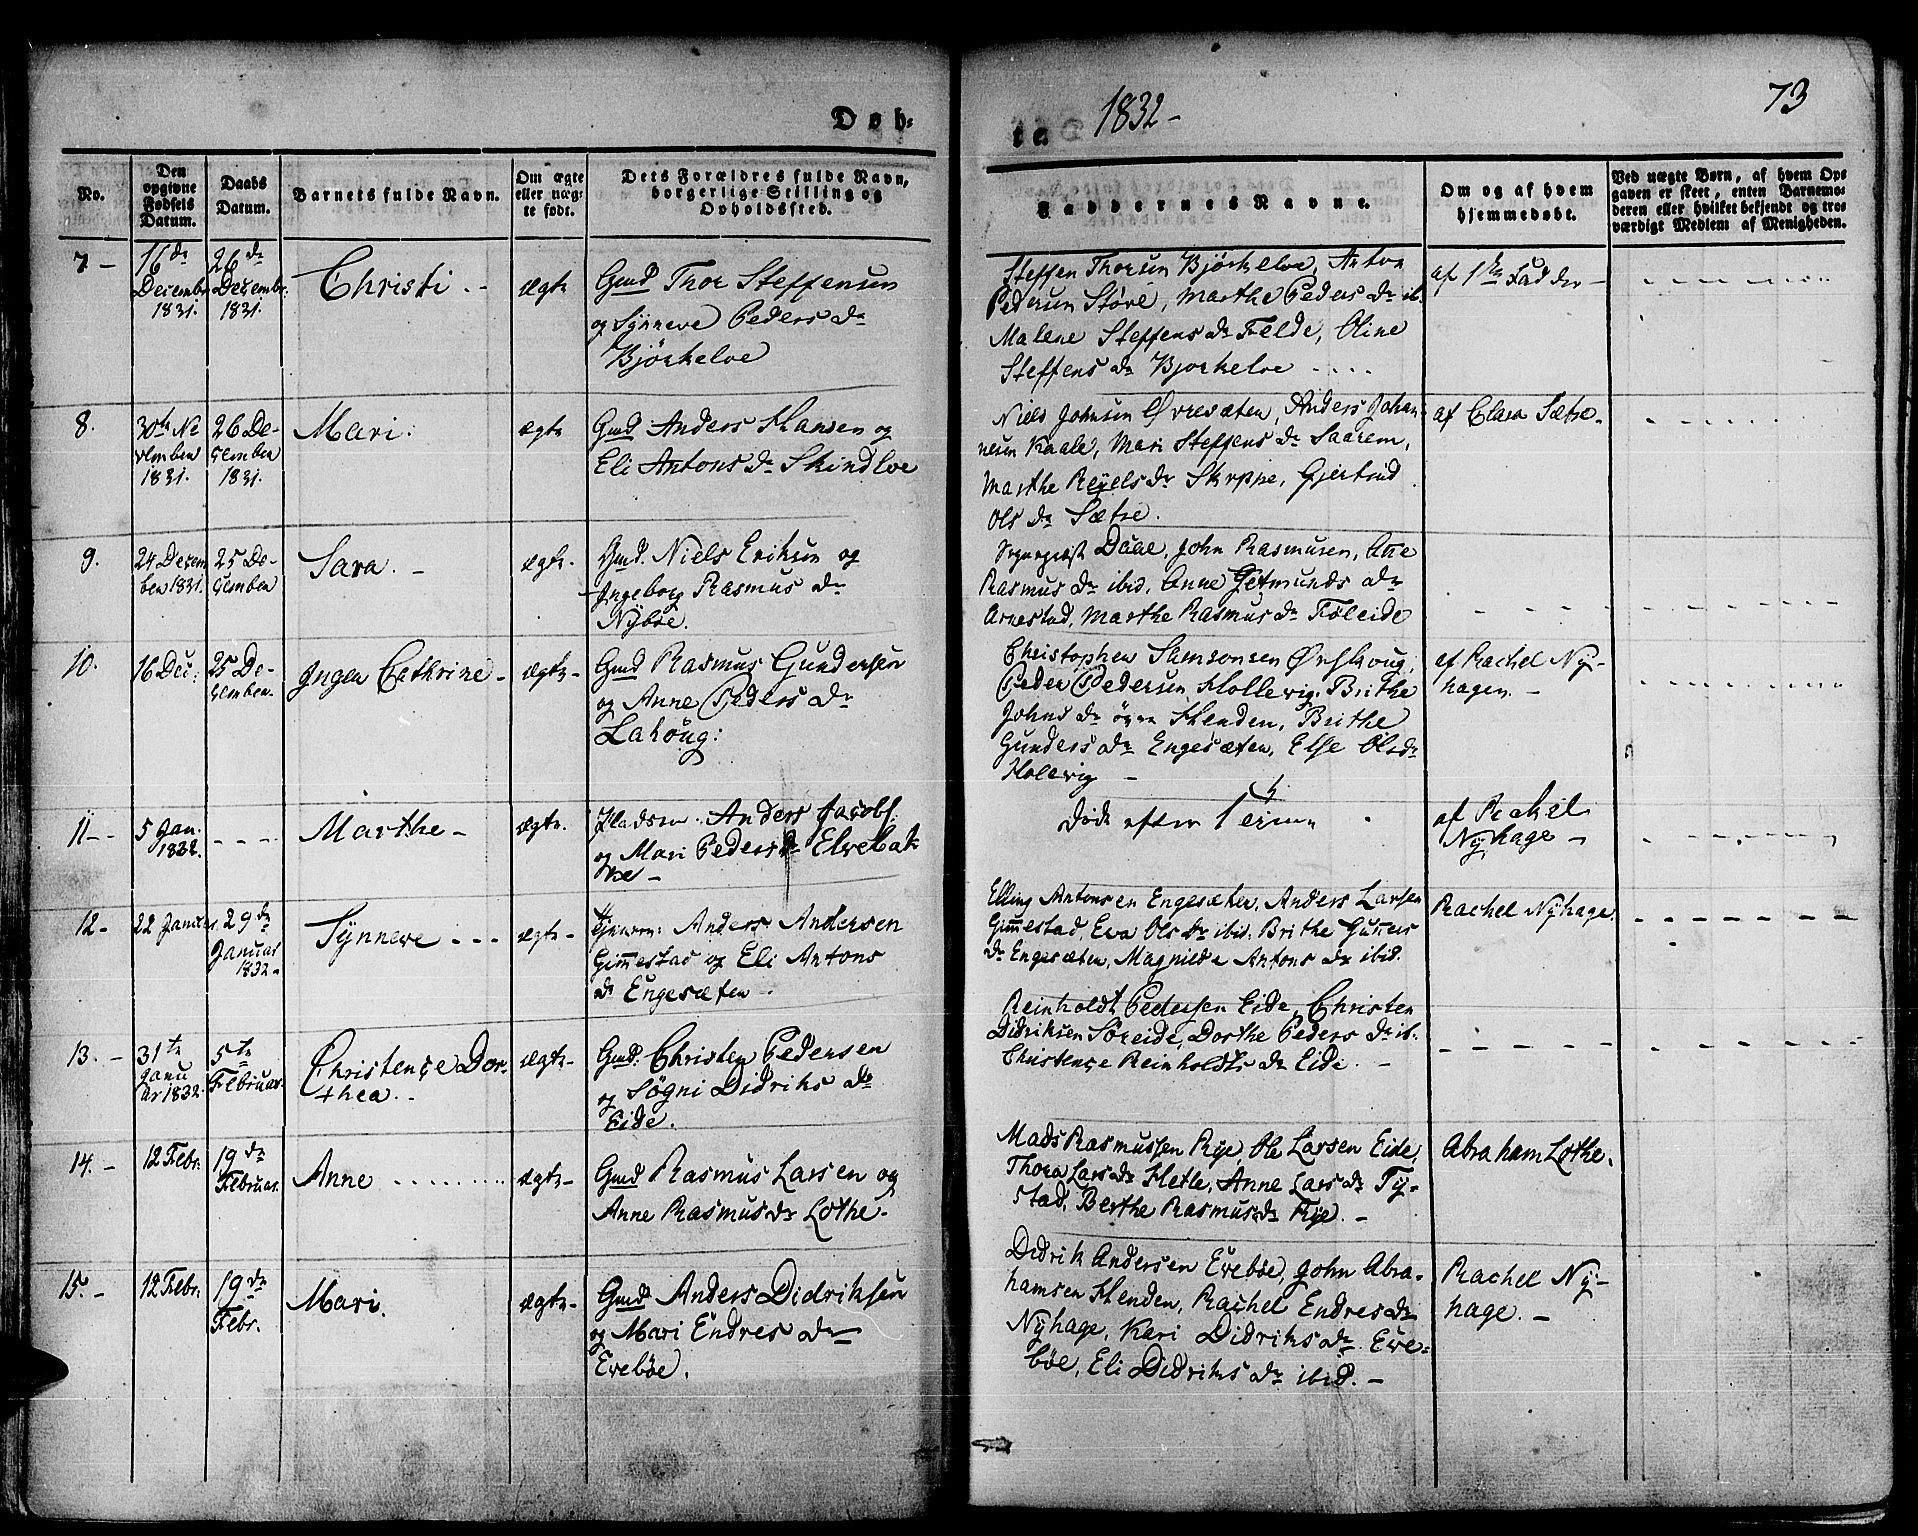 Døb=
te 1832 -
73
No.
Den opgivne Fødsels Datum.
Daabs Datum.
Barnets fulde Navn.
Om ægte eller uægte født.
Dets Forældres fulde Navn, borgerlige Stilling og Opholdssted.
Faddernes Navne.
Om og af hvem hjemmedøbt.
Ved uægte Børn, af hvem Opgaven er skeet, enten Barnemoderen eller hvilket bekjendt og troværdigt Medlem af Menigheden.
7 -
16de
Decembr
1831.
26de
Decembr:
1831.
Christi - -
ægte
Gmd Thor Steffensen
og Synneve Peders Dr
Bjørkeloe
Steffen Thorsen Bjørkeloe, Anton
Pedersen Støve, Marthe Peders Dr ib.
Malene Steffens Dr Felde, Oline
Steffens Dr Bjorkeloe ....
af 1ste Fadder
8.
30te No
vember
1831.
26 De-
cember
1831.
Mari.
ægte
Gmd Anders Hansen og
Eli Antons Dr Skindloe
Niels Johnsen Øvresæten, Anders Johan-
nesen Kaale, Mari Steffens Dr Saarem,
Marthe Reÿels Dr Skrppe, Gjertrud
Ols Dr Sætre.
af Clara Sætre.
9.
24 Decem
ber 1831.
25 De-
cember
Sara. -
ægte-
Gmd. Niels Eriksen og
Ingeborg Rasmus Dr
Nÿbøe.
Sogneprest Daae, John Rasmusen, Ane
Rasmus Dr ibid, Anne Getmunds Dr
Arnestad, Marthe Rasmus Dr Føleide
10.
16 Dec:
25 De-
cember.
Inger Cathrine -
ægte-
Gmd Rasmus Gundersen
og Anne Peders Dr
Lahoug:
Christopher Samsonsen Ørshoug,
Peder Pedersen Hollevig, Brithe
Johns Dr øvre Henden, Brithe
Gunders Dr Engesæten, Else Olsdr
Holevig -
af Rachel Ny-
hagen. -
11 - -
5 Jan.
1832.
- - - -
Marthe -
ægte.
Pladsm. Anders Jacobs.
og Mari Peders Dr Elvebak
ke -
Døde efter 1
af Rachel
Nÿhage -
12 -
22 Januar.
29de
Januar
1832 -
Synneve - - -
ægte-
Anders Andersen
Gim̅estad og Eli Antons
Dr Engesæten.
Elling Antonsen Engesæter, Anders Larsen
Gim̅estad, Eva Ols Dr ibid. Brithe Gun̅ers
Dr Engesæten, Magnilde Antons Dr ibid.
Rachel Nÿhage.
13. -
31te
Janu
ar 1832.
5te
Februar.
Christence Dor-
thea. -
ægte-
Gmd. Christen Pedersen
og Søgni Didriks Dr
Eide.
Reinholdt Pedersen Eide, Christen
Didriksen Søreide, Dorthe Peders Dr ib.
Christence Reinholdts Dr Eide. -
14. -
12 Febr:
19de
Februar.
Anne ..........
ægte-
Gmd Rasmus Larsen og
Anne Rasmus Dr Lothe.
Mads Rasmussen Rye, Ole Larsen Eide,
Thora Lars Dr Hetle, Anne Lars Dr Ty-
stad, Berthe Rasmus Dr Rye. -
Abraham Lothe.
15. -
12 Febr:
19de
Febr.
Mari.
ægte-
Gmd Anders Didriksen
og Mari Endres Dr
Evebøe.
Didrik Andersen Evebøe, John Abra-
hamsen Henden, Rachel Endres Dr
Nÿhage, Kari Didriks Dr Eve=
bøe, Eli Didriks Dr ibid. -
Rachel Ny-
hage. -